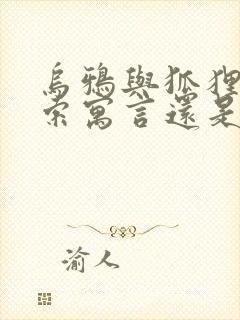 烏鴉與狐狸
索寓言還是
渝人